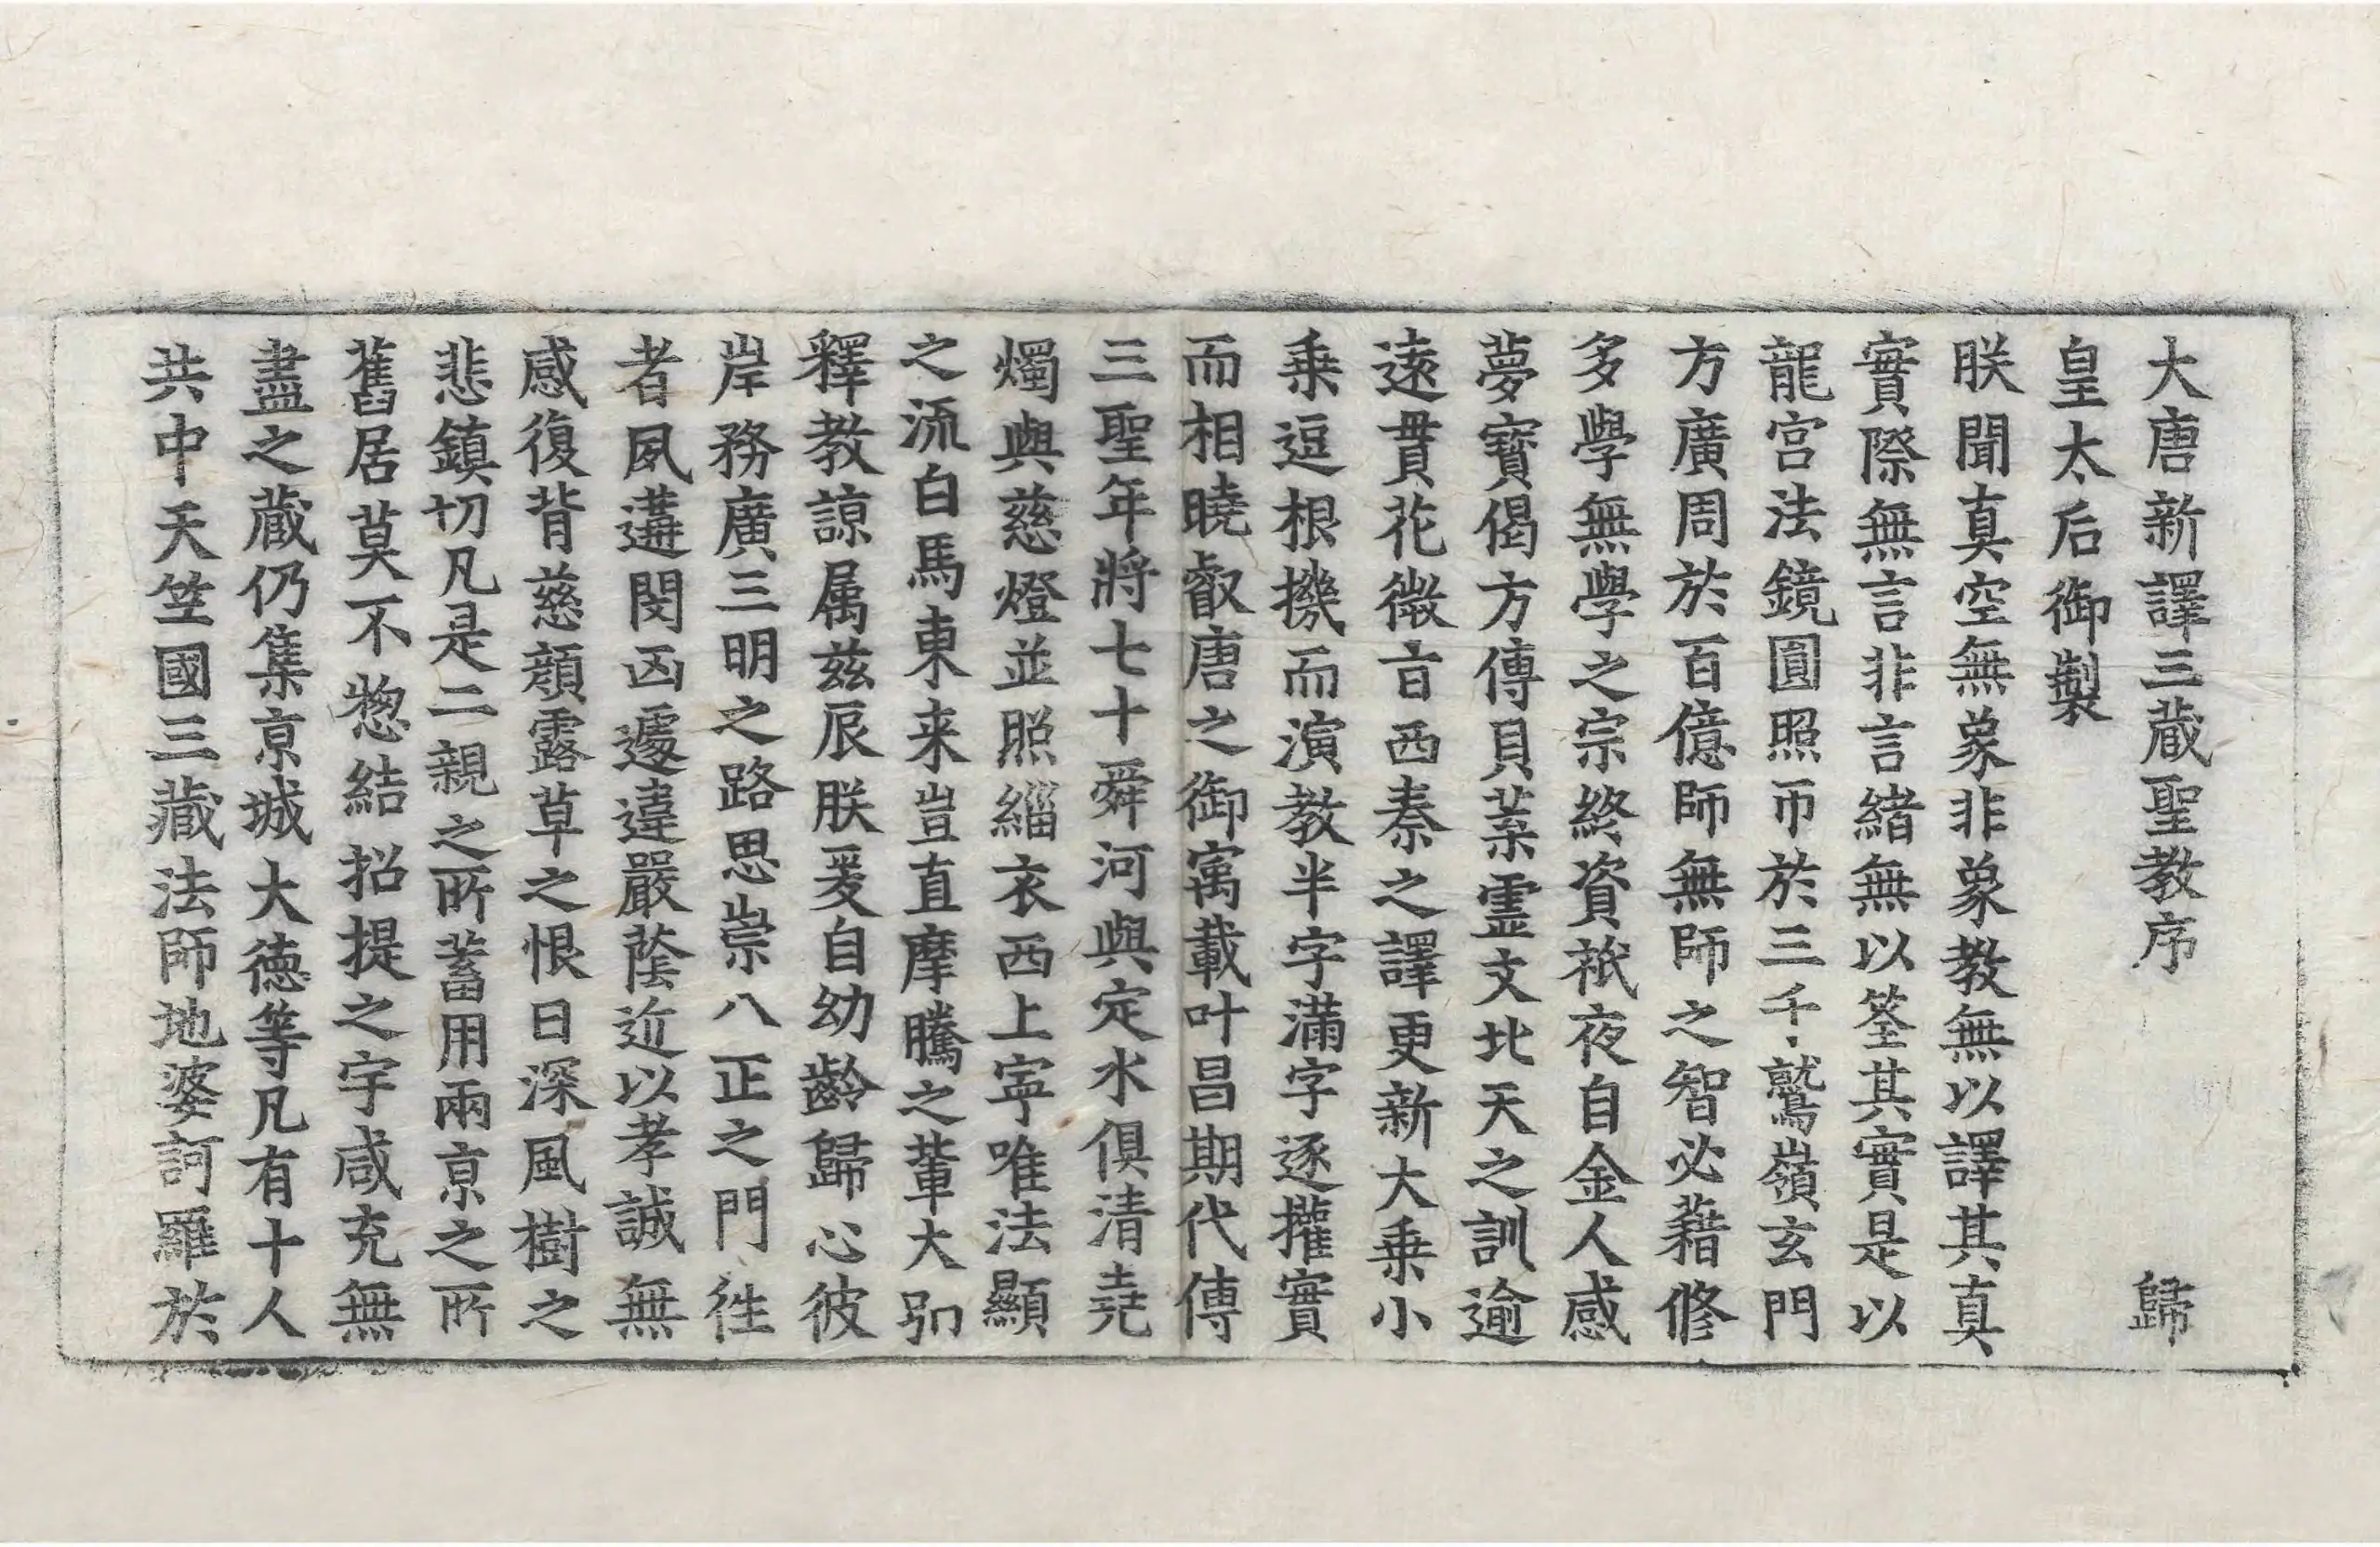 大唐新譯三藏聖教序 歸
皇太后御製
朕聞真空無象非象教無以譯其真
實際無言非言緒無以筌其實是以
龍宮法鏡圓照帀於三千鷲嶺玄門
方廣周於百億師無師之智必藉修
多學無學之宗終資祇夜自金人感
夢寶偈方傳貝葉靈文北天之訓逾
遠貫花微言西秦之譯更新大乘小
乘逗根機而演教半字滿字逐攉實
而相曉叡唐之御寓載叶昌期代傳
三聖年將七十舜河與定水俱清堯
燭與慈燈並照緇衣西上寧唯法顯
之流白馬東来豈直摩騰之輩大弘
釋教諒属兹辰朕爰自幼齡歸心彼
岸務廣三明之路思崇八正之門徃
者夙遘閔凶遽違嚴蔭近以孝誠無
感復背慈顔露草之恨日深風樹之
悲鎮切凡是二親之所蓄用兩京之所
舊居莫不惣結招提之宇咸充無
盡之藏仍集京城大德等凡有十人
共中天笁國三藏法師地婆訶羅於